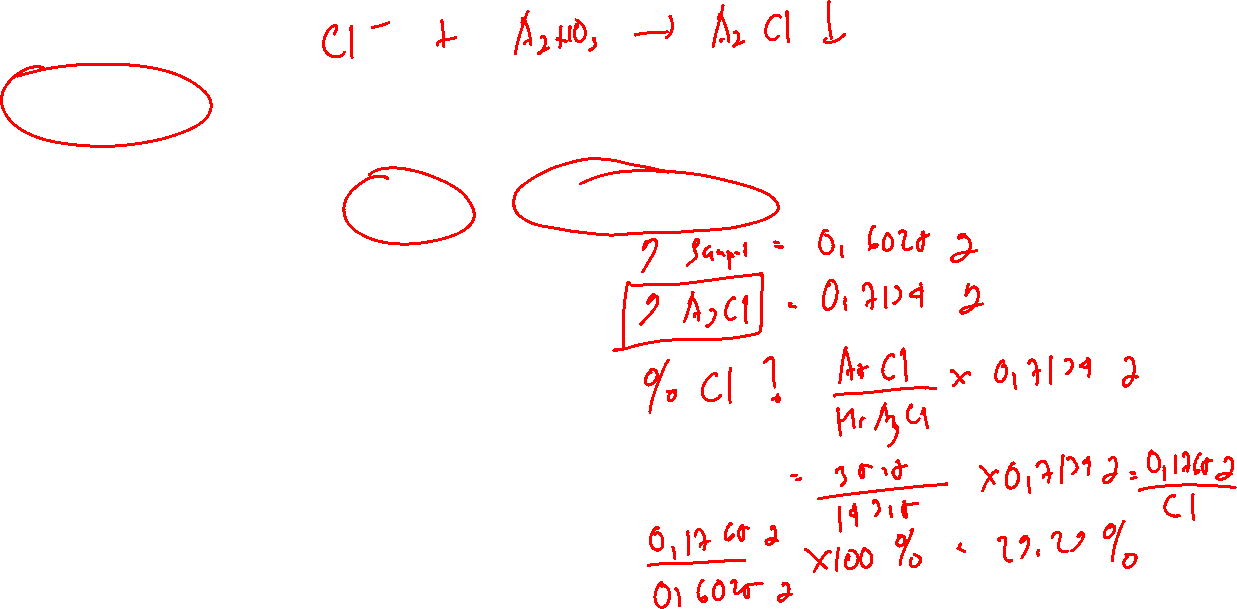 Cl⁻ + AgNO₃ → AgCl ↓
g sampel = 0,6025 g
g AgCl = 0,7134 g
% Cl ? Ar Cl / Mr AgCl × 0,7134 g
= 35,5 / 143,5 × 0,7134 g = 0,1765 g Cl
0,1765 g / 0,6025 g × 100 % = 29,29 %